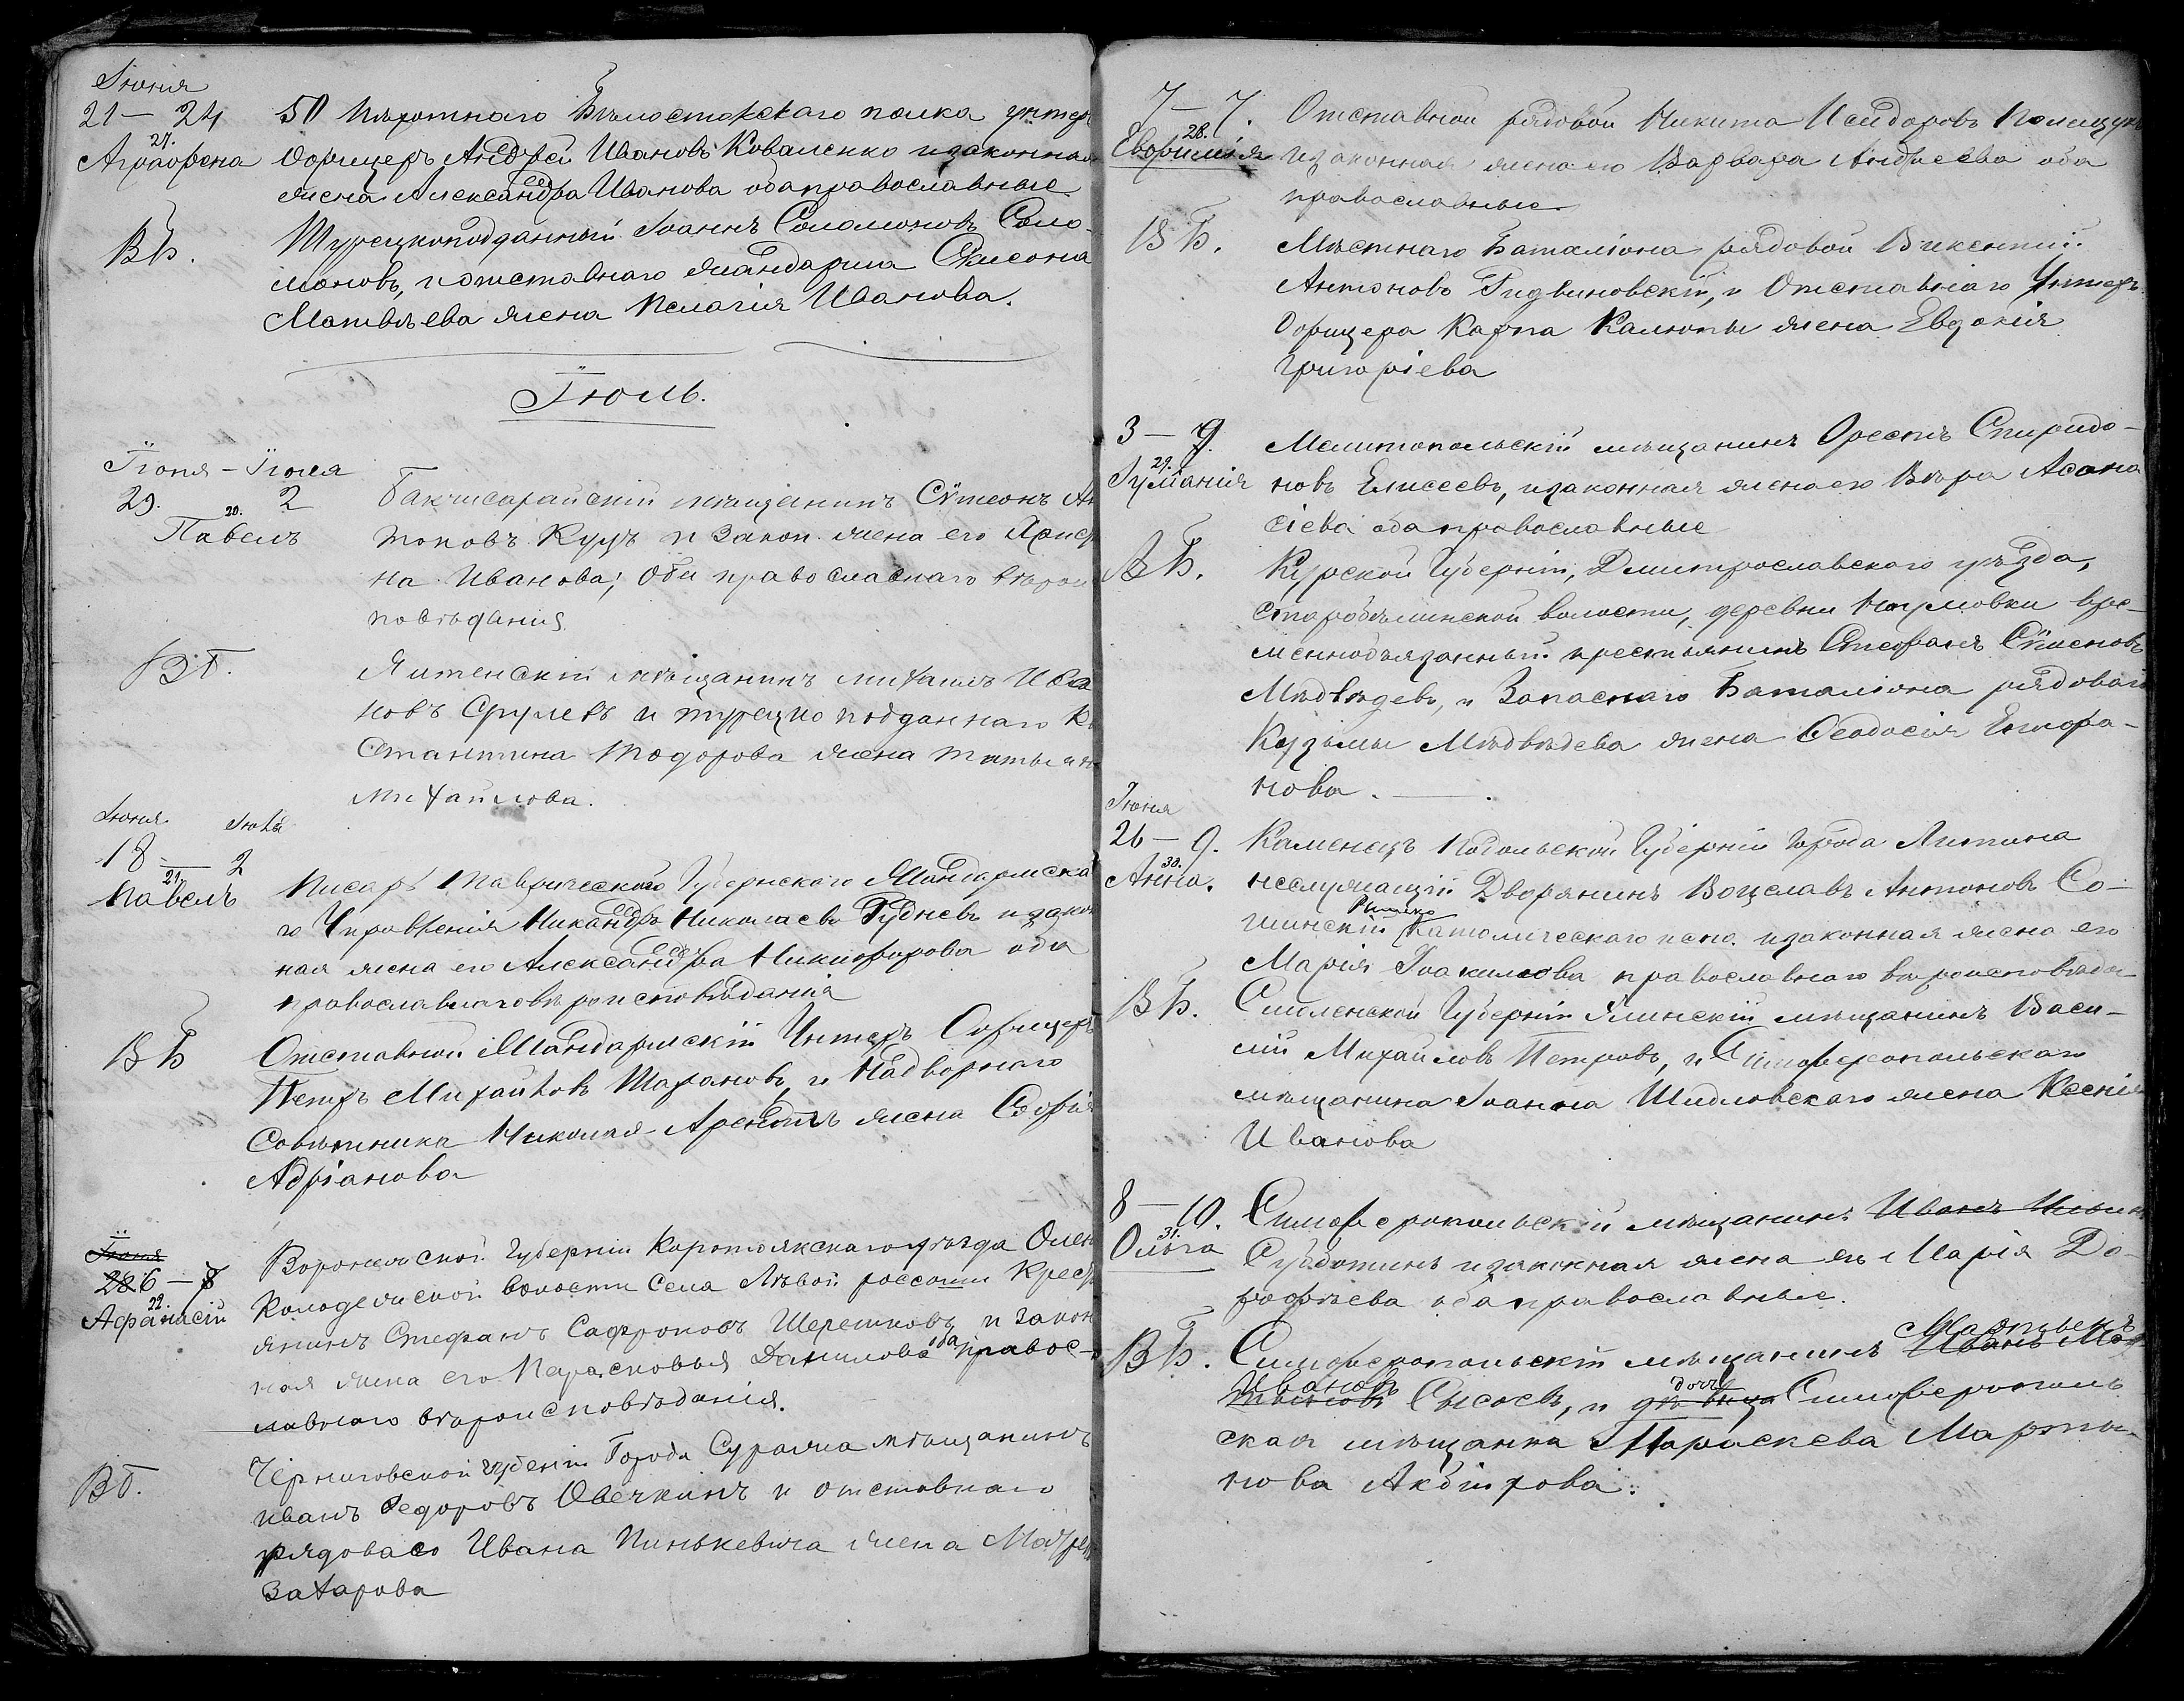 Іюня
21 — 24 50 Пѣхотнаго Бѣлостокскаго полка унтеръ
27.
Агрофена Офицеръ Андрей Ивановъ Коваленко изаконная
жена Александра Иванова оба православные
ВБ. Турецкоподданный Іоаннъ Соломоновъ Соло-
моновъ, и отставнаго жандарма Симеона
Матвѣева жена Пелагія Иванова.
Іюль.
Іюня – Іюля
29. 2 Бакчисарайскій мѣщенинъ Сѵмеонъ Ан
20.
Павелъ тоновъ Куцъ и Закон. жена его Христи
на Иванова; Оба православнаго вѣроис
повѣданія
ВБ. Ялтенскій мѣщанинъ Михаилъ Ива
новъ и турецко подданнаго Ко
Стантина Тодорова жена Татьяна
Михайлова.
Іюня Іюля
18 — 2
21.
Павелъ Писарь Таврическаго Губернскаго Жандармска
го Управленія Никандръ Николаевъ Рудневъ изакон
ная жена его Александра Никифорова оба
православнаговѣроисповѣданія
ВБ Отставной Жандармскій Унтеръ Офицеръ
Петръ Михайловъ Шарановъ, и Надворнаго
Совѣтника Николая Арендтъ жена Софія
Адріанова
Іюня
286 — 8 Воронежской Губерніи Коротоякскаго уѣзда Олен
22.
Афанасій Колодежской волости Села Лѣвой россоши Крест
янинъ Стефанъ Сафроновъ Шерешковъ и закон
ная жена его Парасковья Данилова оба правос-
лавнаго вѣроисповѣданія.
ВБ. Черниговской губеніи Города Суража мѣщанинъ
иванъ Федоровъ Овечкинъ и отставнаго
рядоваго Ивана Пинькевича жена Матрена
Захарова
7 — 7. Отставной рядовой Никита Исидоровъ Полищукъ
28.
Евфимія изаконная женаего Варвара Андреева оба
православные
ВБ. Мѣстнаго Баталіона рядовой Викентій
Антоновъ Гидвиновскій, и Отставнаго Унтеръ
Офицера Карпа Калюты жена Евдокія
Григоріева
3 — 9. Мелитопольскій мѣщанинъ Орестъ Спиридо-
29.
Іуліанія новъ Елисеевъ, изаконная женаего Вѣра Асана
сіева оба православные
ВБ. Курской Губерніи, Дмитрославскаго уѣзда,
Старобѣлинской волости, деревни Наумовки вре-
меннообязанный крестьянинъ Стефанъ Сѵменовъ
Мѣдвѣдевъ, и Запаснаго Баталіона рядоваго
Кузьмы Мѣдвѣдева жена Феодосія Епифа-
нова.
Іюня
26 — 9. Каменецъ Подольской Губерніи Города Литина
30.
Анна. неслужащій Дворянинъ Воцеславъ Антоновъ Со-
Римско
шинскій Католическаго испо. изаконная жена его
Марія Іоакимова православнаго вѣроисповѣда
ВБ. Смоленской Губерніи Ялинскій мѣщанинъ Васи-
лій Михайловъ Петровъ, и Симферопольскаго
мѣщанина Іоанна Шидловскаго жена Ксенія
Иванова
8 — 10. Симферопольскій мѣщанинъ Иванъ Ильинъ
31.
Ольга Субботинъ изаконная жена его Марія До-
рофѣева оба православные.
Мартынъ
ВБ. Симферопольскій мѣщанинъ Иванъ Мар
Ивановъ дочь
тыновъ Сысоевъ, и дѣвица Симферополь
ская мѣщанка Параскева Марты-
нова Акбипрова.